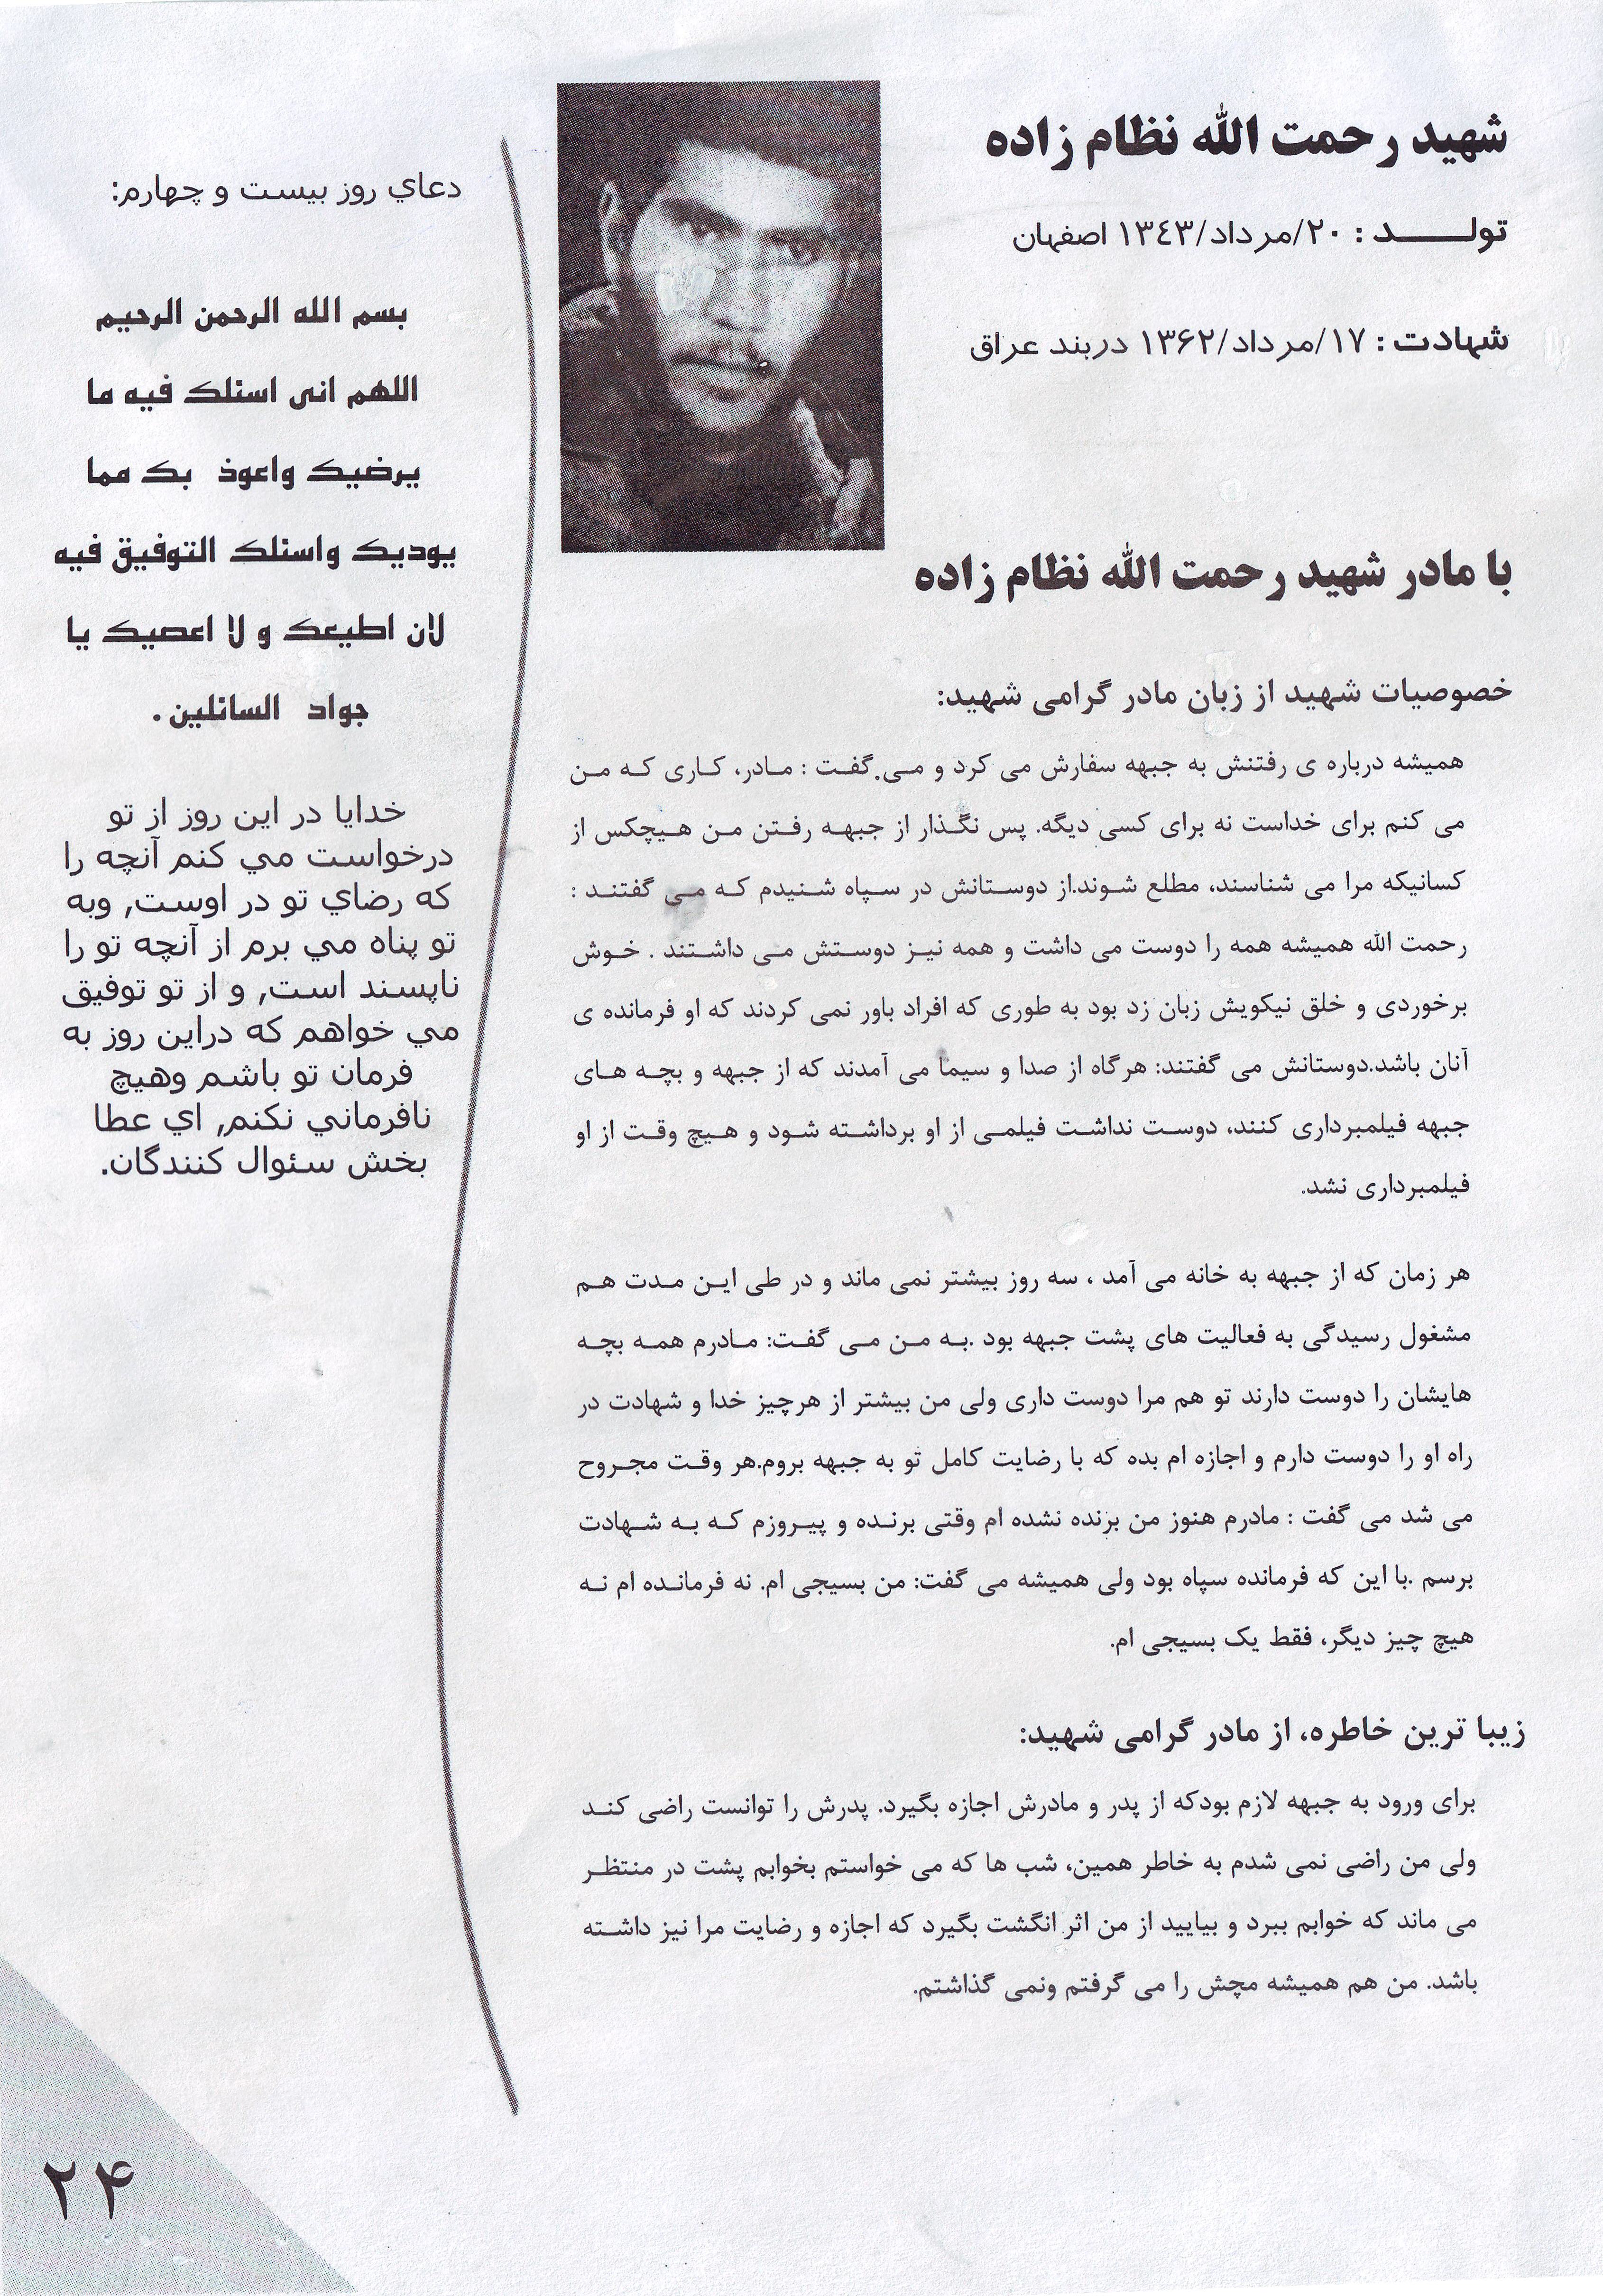 شهید رحمت الله نظام زاده
تولــــد : ۲۰/مرداد/۱۳٤۳ اصفهان
شهادت : ۱۷/مرداد/۱۳۶۲ دربند عراق
با مادر شهید رحمت الله نظام زاده
خصوصیات شهید از زبان مادر گرامی شهید:
همیشه درباره ی رفتنش به جبهه سفارش می کرد و می گفت : مادر، کاری که من
می کنم برای خداست نه برای کسی دیگه. پس نگذار از جبهه رفتن من هیچکس از
کسانیکه مرا می شناسند، مطلع شوند.از دوستانش در سپاه شنیدم که می گفتند :
رحمت الله همیشه همه را دوست می داشت و همه نیز دوستش می داشتند . خوش
برخوردی و خلق نیکویش زبان زد بود به طوری که افراد باور نمی کردند که او فرمانده ی
آنان باشد.دوستانش می گفتند: هرگاه از صدا و سیما می آمدند که از جبهه و بچه های
جبهه فیلمبرداری کنند، دوست نداشت فیلمی از او برداشته شود و هیچ وقت از او
فیلمبرداری نشد.
هر زمان که از جبهه به خانه می آمد ، سه روز بیشتر نمی ماند و در طی این مدت هم
مشغول رسیدگی به فعالیت های پشت جبهه بود .به من می گفت: مادرم همه بچه
هایشان را دوست دارند تو هم مرا دوست داری ولی من بیشتر از هرچیز خدا و شهادت در
راه او را دوست دارم و اجازه ام بده که با رضایت کامل تو به جبهه بروم.هر وقت مجروح
می شد می گفت : مادرم هنوز من برنده نشده ام وقتی برنده و پیروزم که به شهادت
برسم .با این که فرمانده سپاه بود ولی همیشه می گفت: من بسیجی ام. نه فرمانده ام نه
هیچ چیز دیگر، فقط یک بسیجی ام.
زیبا ترین خاطره، از مادر گرامی شهید:
برای ورود به جبهه لازم بودکه از پدر و مادرش اجازه بگیرد. پدرش را توانست راضی کند
ولی من راضی نمی شدم به خاطر همین، شب ها که می خواستم بخوابم پشت در منتظر
می ماند که خوابم ببرد و بیایید از من اثر انگشت بگیرد که اجازه و رضایت مرا نیز داشته
باشد. من هم همیشه مچش را می گرفتم ونمی گذاشتم.
دعاي روز بیست و چهارم:
بسم الله الرحمن الرحیم
اللهم انی اسئلک فیه ما
یرضیک واعوذ بک مما
یودیک واسئلک التوفیق فیه
لان اطیعک و لا اعصیک یا
جواد السائلین .
خدایا در این روز از تو
درخواست مي کنم آنچه را
که رضاي تو در اوست, وبه
تو پناه مي برم از آنچه تو را
ناپسند است, و از تو توفیق
مي خواهم که دراین روز به
فرمان تو باشم وهیچ
نافرماني نکنم, اي عطا
بخش سئوال کنندگان.
۲۴